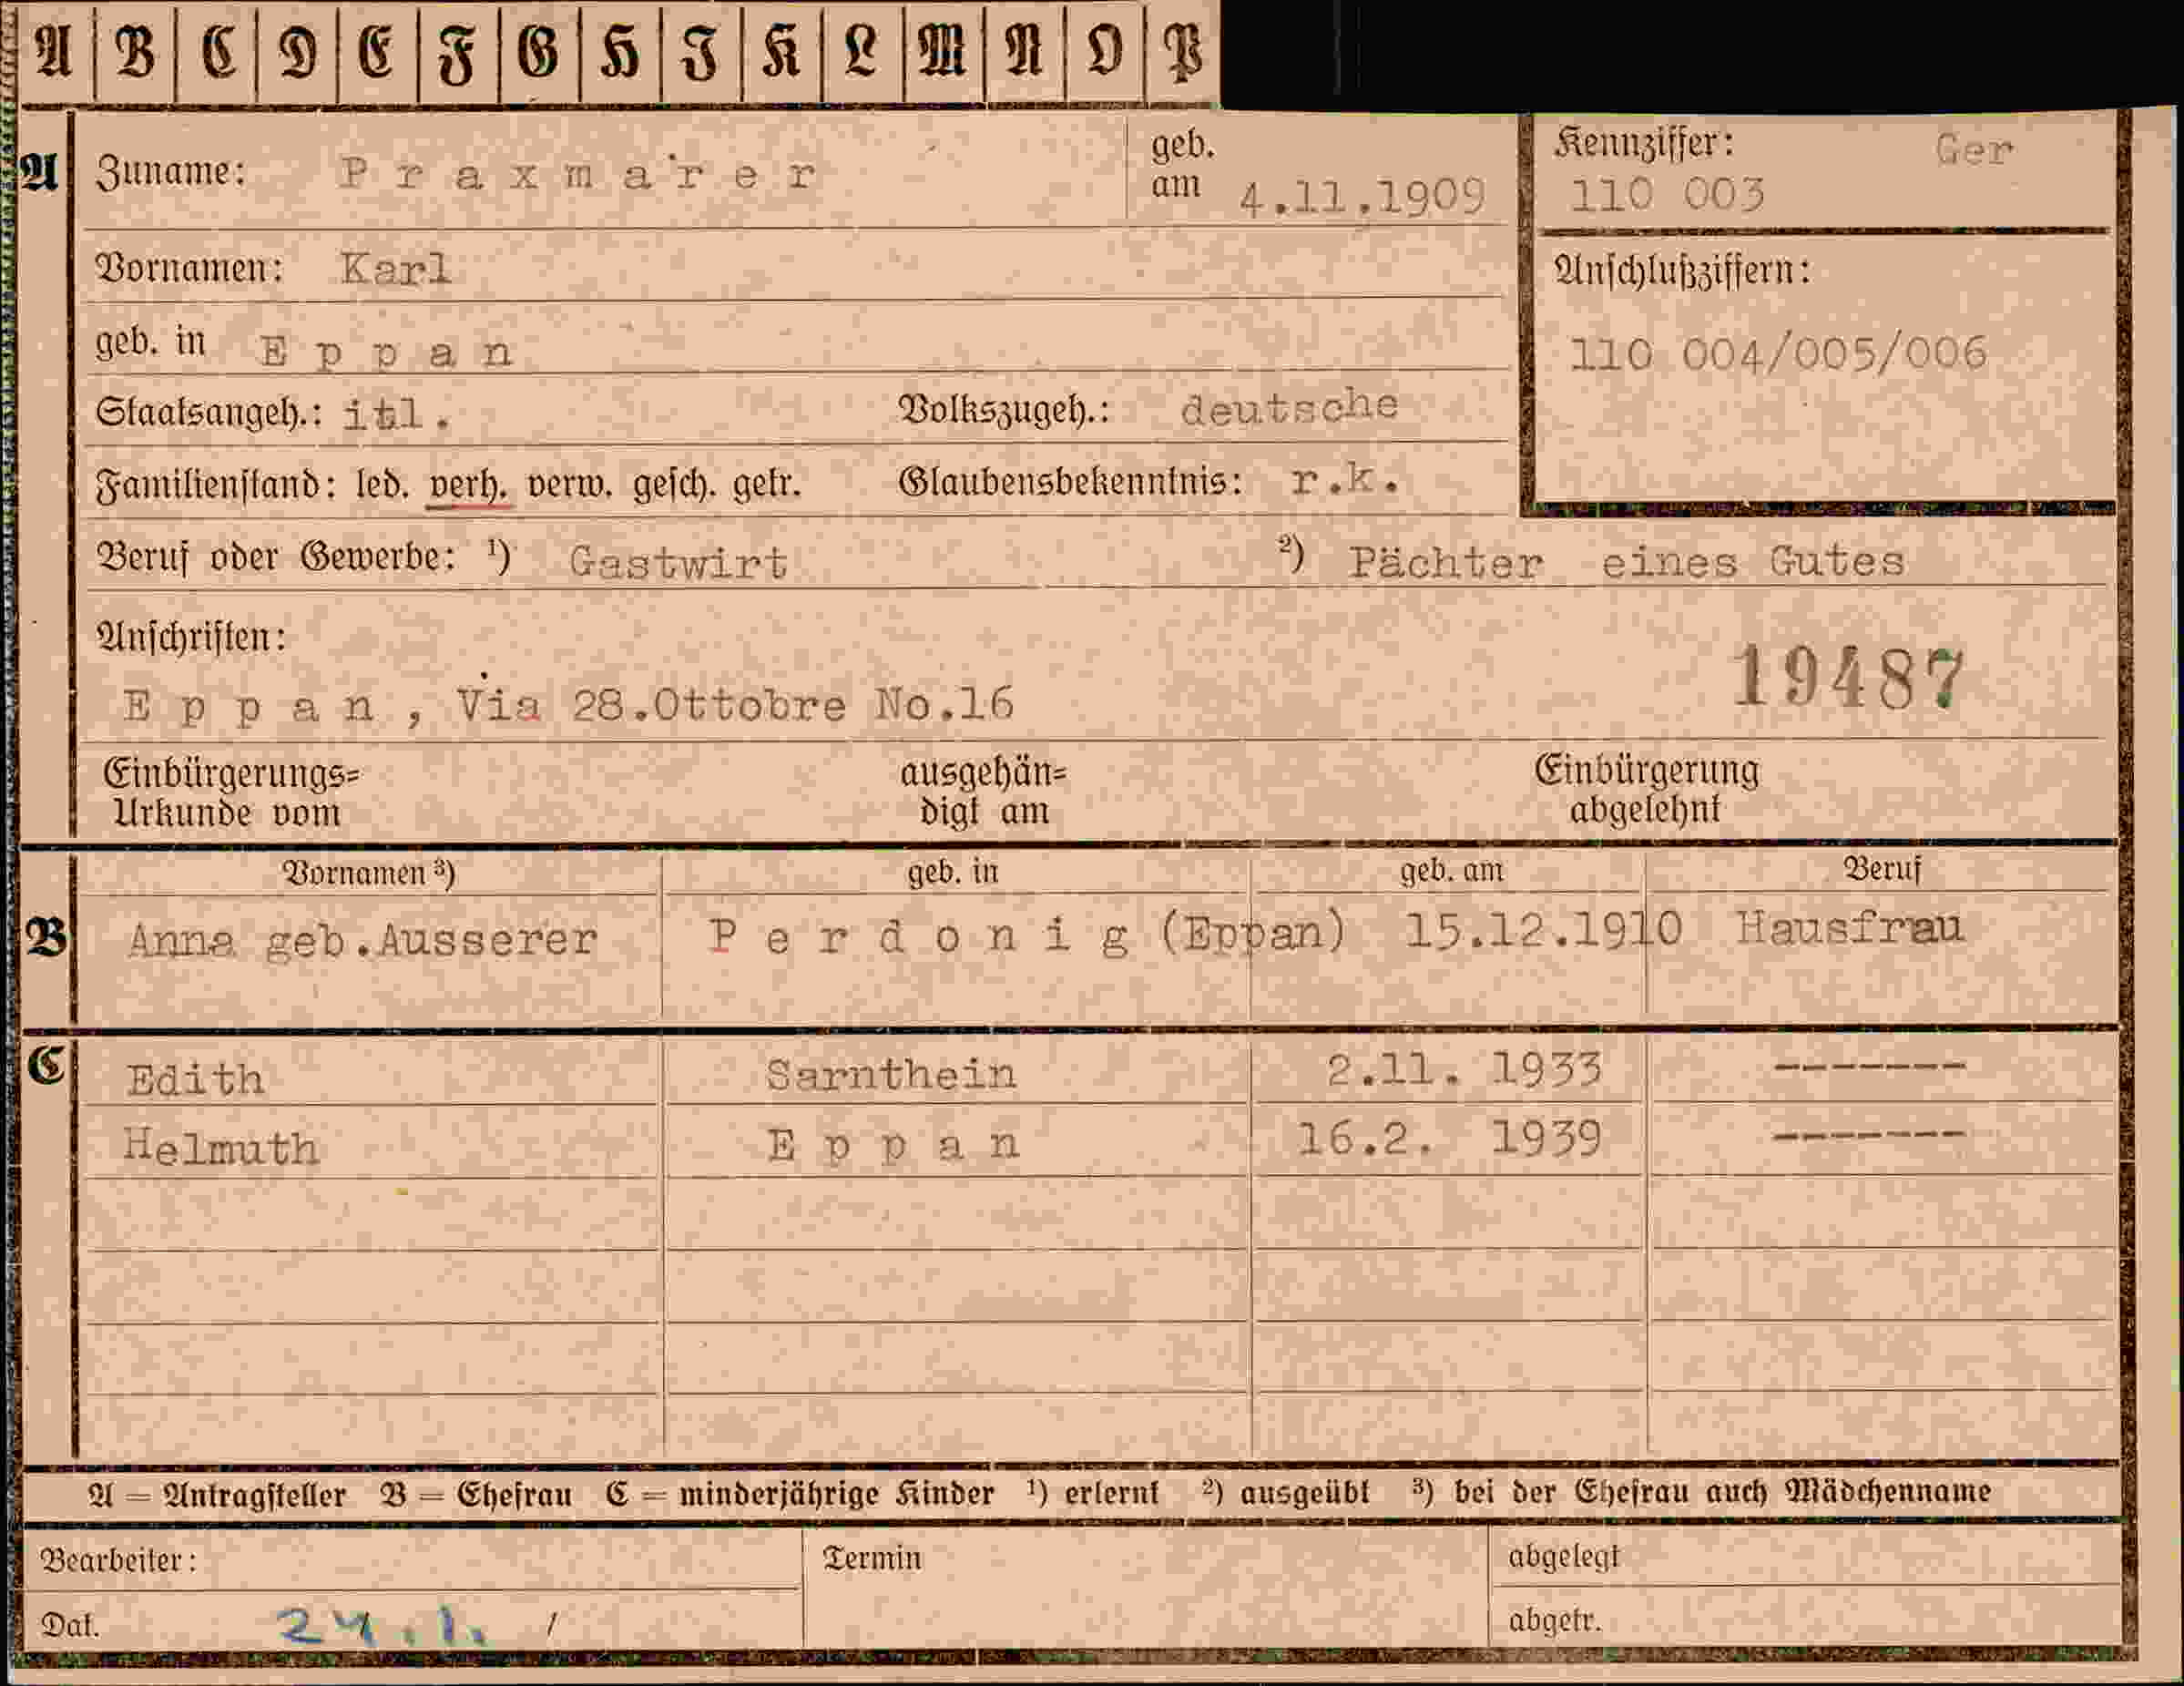 A B C D E F G H I K L M N O P
A Zuname: Praxmarer geb. am 4.11.1909 Kennziffer: Ger
110 003
Vornamen: Karl Anschlußziffern:
geb. in Eppan 110 004/005/006
Staatsangeh.: itl. Volkszugeh.: deutsche
Familienstand: led. verh. verw. gesch. getr. Glaubensbekenntnis: r.k.
Beruf oder Gewerbe: ¹) Gastwirt ²) Pächter eines Gutes
Anschriften:
19487
Eppan, Via 28.Ottobre No.16
Einbürgerungs= ausgehän= Einbürgerung
Urkunde vom digt am abgelehnt
Vornamen ³) geb. in geb. am Beruf
B Anna geb.Ausserer Perdonig (Eppan) 15.12.1910 Hausfrau
C Edith Sarnthein 2.11. 1933 -------
Helmuth Eppan 16.2. 1939 -------
A = Antragsteller B = Ehefrau C = minderjährige Kinder ¹) erlernt ²) ausgeübt ³) bei der Ehefrau auch Mädchenname
Bearbeiter: Termin abgelegt
Dat. 24.1. / abgetr.